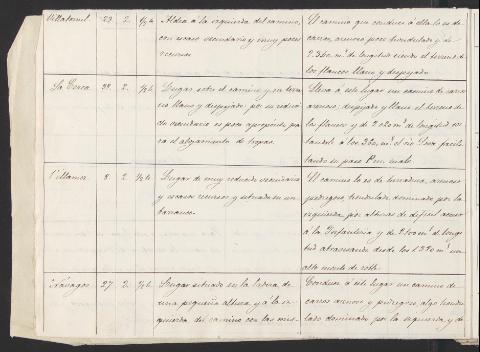 Villatoruil 23. 2. ½ h. Aldea á la izquierda del camino, El camino que conduce á ella lo es de
con escaso vecindario y muy pocos carros, arenoso poco hondulado y de
recursos 2.360. m.ˢ de longitud siendo el terreno de
los flancos llano y despejado.
La Cerca 38. 2. ½ h. Lugar sobre el camino y en terre Lleva á este lugar un camino de carros
no llano y despejado, por su reduci arenoso, despejado y llano el terreno de
do vecindario es poco aproposito pa los flancos y de 2.020 m.ˢ de longitud
ra el alojamiento de tropas. á los 350. m.ˢ el rio facili
tando su paso
Villamor 8. 2. ½ h. Lugar de muy reducido vecindario El camino lo es de herradura, arenoso
y escasos recursos y situado en un pedregoso, hondulado dominado por la
barranco. izquierda por alturas de dificil acceso
á la Infanteria y de 2.700 m.ˢ de longi
tud atravesando desde los 1.320 m.ˢ un
alto monte de roble.
Návagos 27 2. ½ h. Lugar situado en la ladera de Conduce á este lugar un camino de
una pequeña altura, y á la iz carros arenoso y pedregoso, algo hondu
quierda del camino con las mis- lado dominado por la izquierda, y de